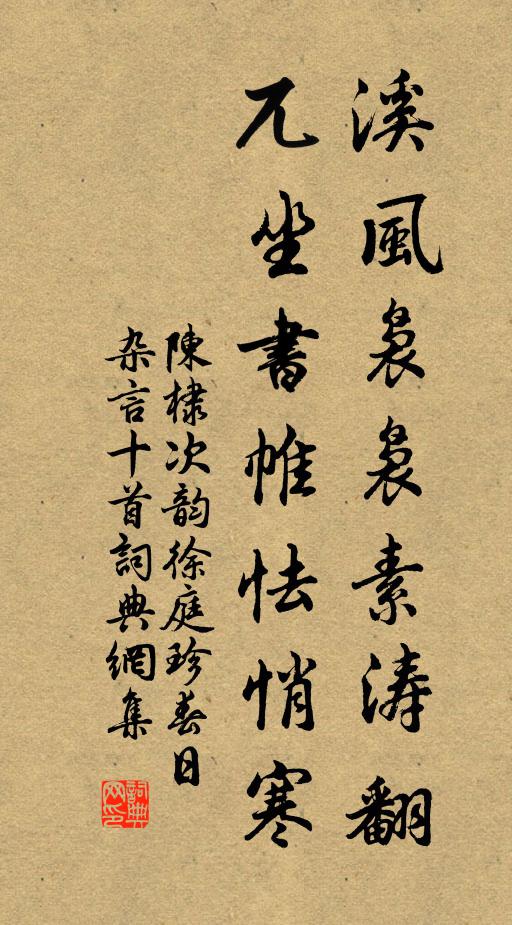 溪風裊裊素濤翻
兀坐書帷怯悄寒
陳棣次韵徐庭珍春日
杂言十首詞典網集
詞典网印